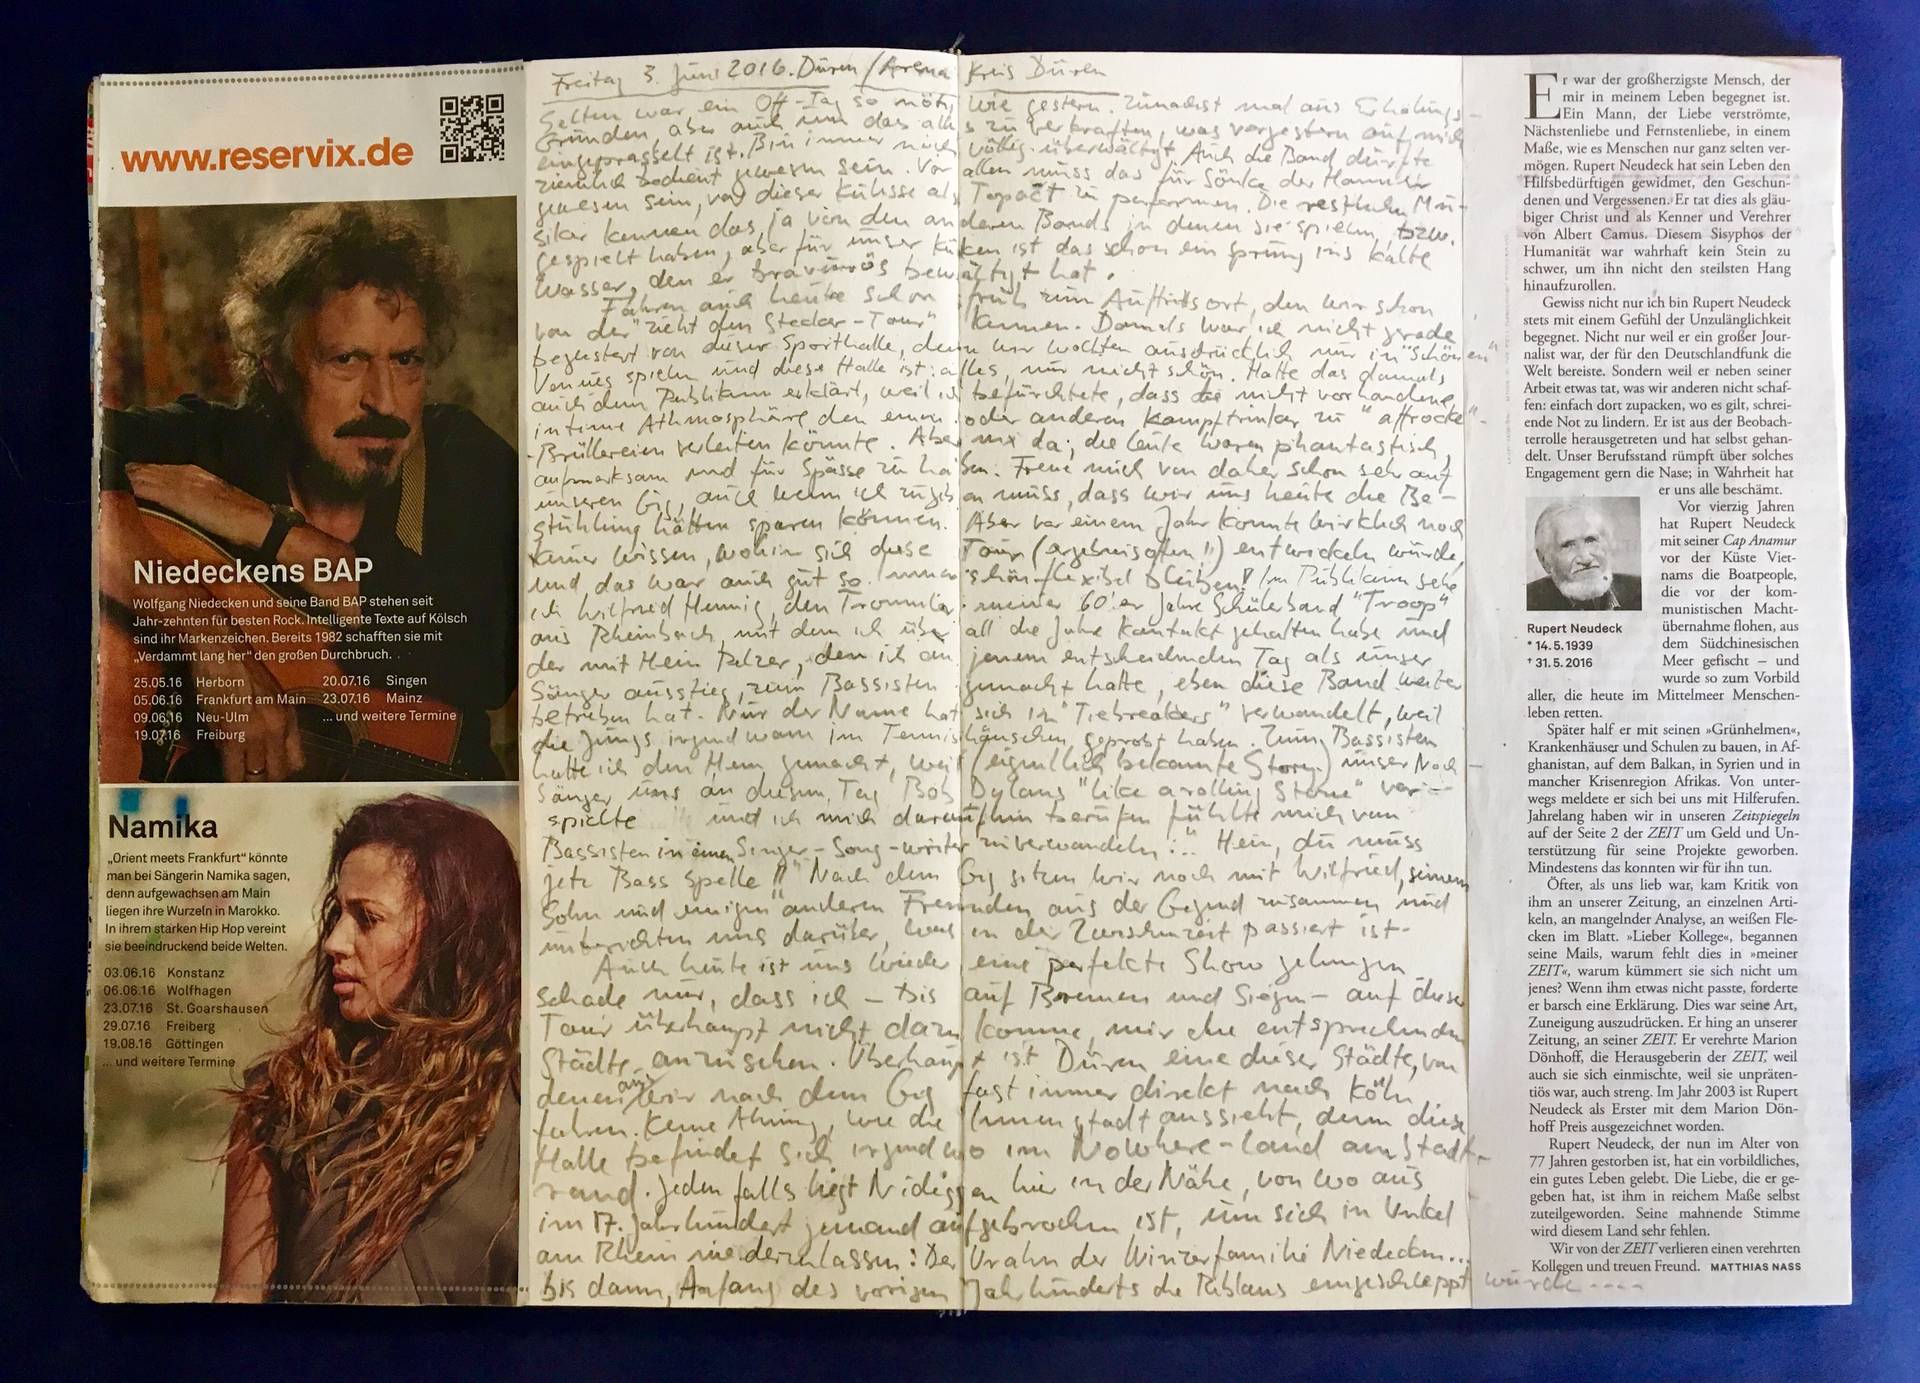 www.reservix.de
Niedeckens BAP
Wolfgang Niedecken und seine Band BAP stehen seit
Jahr-zehnten für besten Rock. Intelligente Texte auf Kölsch
sind ihr Markenzeichen. Bereits 1982 schafften sie mit
„Verdammt lang her“ den großen Durchbruch.
25.05.16 Herborn 20.07.16 Singen
05.06.16 Frankfurt am Main 23.07.16 Mainz
09.06.16 Neu-Ulm ... und weitere Termine
19.07.16 Freiburg
Namika
„Orient meets Frankfurt“ könnte
man bei Sängerin Namika sagen,
denn aufgewachsen am Main
liegen ihre Wurzeln in Marokko.
In ihrem starken Hip Hop vereint
sie beeindruckend beide Welten.
03.06.16 Konstanz
06.06.16 Wolfhagen
23.07.16 St. Goarshausen
29.07.16 Freiberg
19.08.16 Göttingen
... und weitere Termine
Freitag 3. Juni 2016. Düren / Arena Kreis Düren
Selten war ein Off-Tag so nötig wie gestern. Zunächst mal aus Erholungs-
Gründen, aber auch um das alles zu verkraften, was vorgestern auf mich
eingeprasselt ist. Bin immer noch völlig überwältigt. Auch die Band dürfte
ziemlich gewesen sein. Vor allem muss das für Sönke der Hammer
gewesen sein, vor dieser Kulisse als Topact zu performen. Die restlichen Mu-
siker kennen das ja von den anderen Bands in denen sie spielen, bzw.
gespielt haben, aber für unser Küken ist das schon ein Sprung ins kalte
Wasser, den er bravourös bewältigt hat.
Fahren auch heute schon früh zum Auftrittsort, den wir schon
von der "zieht den Stecker-Tour" kennen. Damals war ich nicht gerade
begeistert von dieser Sporthalle, denn wir wollten ausdrücklich nur in "schönen"
Venues spielen und diese Halle ist alles, nur nicht schön. Hatte das damals
auch dem Publikum erklärt, weil ich befürchtete, dass die nicht vorhandene,
intime Athmosphäre den einen oder anderen Kampftrinker zu "affrocke"-
-Brüllereien verleiten könnte. Aber nix da; die Leute waren phantastisch,
aufmerksam und für Spässe zu haben. Freue mich von daher schon sehr auf
unseren Gig, auch wenn ich zugeben muss, dass wir uns heute die Be-
stuhlung hätten sparen können. Aber vor einem Jahr konnte wirklich noch
keiner wissen, wohin sich diese Tour (ergebnisoffen!!) entwickeln würde,
und das war auch gut so. Immer schön flexibel bleiben! Im Publikum sehe
ich Wilfried Hennig, den Trommler meiner 60'er Jahre Schülerband "Troop"
aus Rheinbach, mit dem ich über all die Jahre Kontakt gehalten habe und
der mit Hein Pelzer, den ich an jenem entscheidenden Tag als unser
Sänger ausstieg, zum Bassisten gemacht hatte, eben diese Band weiter
betrieben hat. Nur der Name hat sich in "Tiebreakers" verwandelt, weil
die Jungs irgendwann im Tennishäuschen geprobt haben. Zum Bassisten
hatte ich den Hein gemacht, weil (eigentlich bekannte Story) unser Noch-
Sänger uns an diesem Tag Bob Dylans "Like a rolling Stone" vor-
spielte und ich mich daraufhin berufen fühlte mich vom
Bassisten in einen Singer-Song-writer zu verwandeln: "Hein, du muss
jetz Bass spelle!!" Nach dem Gig sitzen wir noch mit Wilfried, seinem
Sohn und einigen anderen Freunden aus der Gegend zusammen und
unterrichten uns darüber, was in der Zwischenzeit passiert ist.
Auch heute ist uns wieder eine perfekte Show gelungen.
Schade nur, dass ich – bis auf Bremen und Siegen – auf dieser
Tour überhaupt nicht dazu komme, mir die entsprechenden
Städte anzusehen. Überhaupt ist Düren eine dieser Städte, von
denen aus wir nach dem Gig fast immer direkt nach Köln
fahren. Keine Ahnung, wie die Innenstadt aussieht, denn diese
Halle befindet sich irgendwo im Nowhere-Land am Stadt-
rand. Jedenfalls liegt Nideggen hier in der Nähe, von wo aus
im 17. Jahrhundert jemand aufgebrochen ist, um sich in Unkel
am Rhein niederzulassen: Der Urahn der Winzerfamilie Niedecken...
bis dann, Anfang des vorigen Jahrhunderts die Reblaus eingeschleppt wurde ....
Er war der großherzigste Mensch, der
mir in meinem Leben begegnet ist.
Ein Mann, der Liebe verströmte,
Nächstenliebe und Fernstenliebe, in einem
Maße, wie es Menschen nur ganz selten ver-
mögen. Rupert Neudeck hat sein Leben den
Hilfsbedürftigen gewidmet, den Geschun-
denen und Vergessenen. Er tat dies als gläu-
biger Christ und als Kenner und Verehrer
von Albert Camus. Diesem Sisyphos der
Humanität war wahrhaft kein Stein zu
schwer, um ihn nicht den steilsten Hang
hinaufzurollen.
Gewiss nicht nur ich bin Rupert Neudeck
stets mit einem Gefühl der Unzulänglichkeit
begegnet. Nicht nur weil er ein großer Jour-
nalist war, der für den Deutschlandfunk die
Welt bereiste. Sondern weil er neben seiner
Arbeit etwas tat, was wir anderen nicht schaf-
fen: einfach dort zupacken, wo es gilt, schrei-
ende Not zu lindern. Er ist aus der Beobach-
terrolle herausgetreten und hat selbst gehan-
delt. Unser Berufsstand rümpft über solches
Engagement gern die Nase; in Wahrheit hat
er uns alle beschämt.
Vor vierzig Jahren
hat Rupert Neudeck
mit seiner Cap Anamur
vor der Küste Viet-
nams die Boatpeople,
die vor der kom-
munistischen Macht-
übernahme flohen, aus
dem Südchinesischen
Meer gefischt – und
wurde so zum Vorbild
Rupert Neudeck
* 14.5.1939
† 31.5.2016
aller, die heute im Mittelmeer Menschen-
leben retten.
Später half er mit seinen »Grünhelmen«,
Krankenhäuser und Schulen zu bauen, in Af-
ghanistan, auf dem Balkan, in Syrien und in
mancher Krisenregion Afrikas. Von unter-
wegs meldete er sich bei uns mit Hilferufen.
Jahrelang haben wir in unseren Zeitspiegeln
auf der Seite 2 der ZEIT um Geld und Un-
terstützung für seine Projekte geworben.
Mindestens das konnten wir für ihn tun.
Öfter, als uns lieb war, kam Kritik von
ihm an unserer Zeitung, an einzelnen Arti-
keln, an mangelnder Analyse, an weißen Fle-
cken im Blatt. »Lieber Kollege«, begannen
seine Mails, warum fehlt dies in »meiner
ZEIT«, warum kümmert sie sich nicht um
jenes? Wenn ihm etwas nicht passte, forderte
er barsch eine Erklärung. Dies war seine Art,
Zuneigung auszudrücken. Er hing an unserer
Zeitung, an seiner ZEIT. Er verehrte Marion
Dönhoff, die Herausgeberin der ZEIT, weil
auch sie sich einmischte, weil sie unpräten-
tiös war, auch streng. Im Jahr 2003 ist Rupert
Neudeck als Erster mit dem Marion Dön-
hoff Preis ausgezeichnet worden.
Rupert Neudeck, der nun im Alter von
77 Jahren gestorben ist, hat ein vorbildliches,
ein gutes Leben gelebt. Die Liebe, die er ge-
geben hat, ist ihm in reichem Maße selbst
zuteilgeworden. Seine mahnende Stimme
wird diesem Land sehr fehlen.
Wir von der ZEIT verlieren einen verehrten
Kollegen und treuen Freund. MATTHIAS NASS